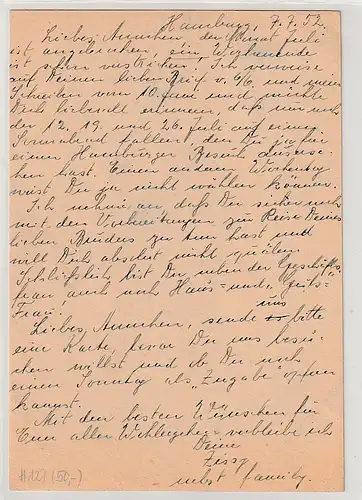 Hamburg, 7.7.52
Liebes Annchen, der Monat Juli
ist angebrochen, ein Wochenende
ist schon verstrichen! Ich verweise
auf Deinen lieben Brief v. 6/6 und mein
Schreiben vom 10. Juni und möchte
Dich liebevoll erinnern, daß nur noch
der 12., 19. und 26. Juli auf einen
Sonnabend fallen, den Du ja für
einen Hamburger Besuch auserse-
hen hast. Einen anderen Wochentag
wirst Du ja nicht wählen können.
Ich nehme an, daß Du sicher noch
mit den Vorbereitungen zur Reise Deines
lieben Bruders zu tun hast und
will Dich absolut nicht quälen.
Schließlich bist Du neben der Geschäfts-
frau auch noch Haus- und
Frau!
Liebes Annchen, sende uns bitte
eine Karte, bevor Du uns besu-
chen willst und ob Du noch
einen Sonntag als "Zugabe" opfern
kannst.
Mit den besten Wünschen für
Euer aller Wohlergehen verbleibe ich
Deine
Zissy
nebst family.
#127 (50,-)